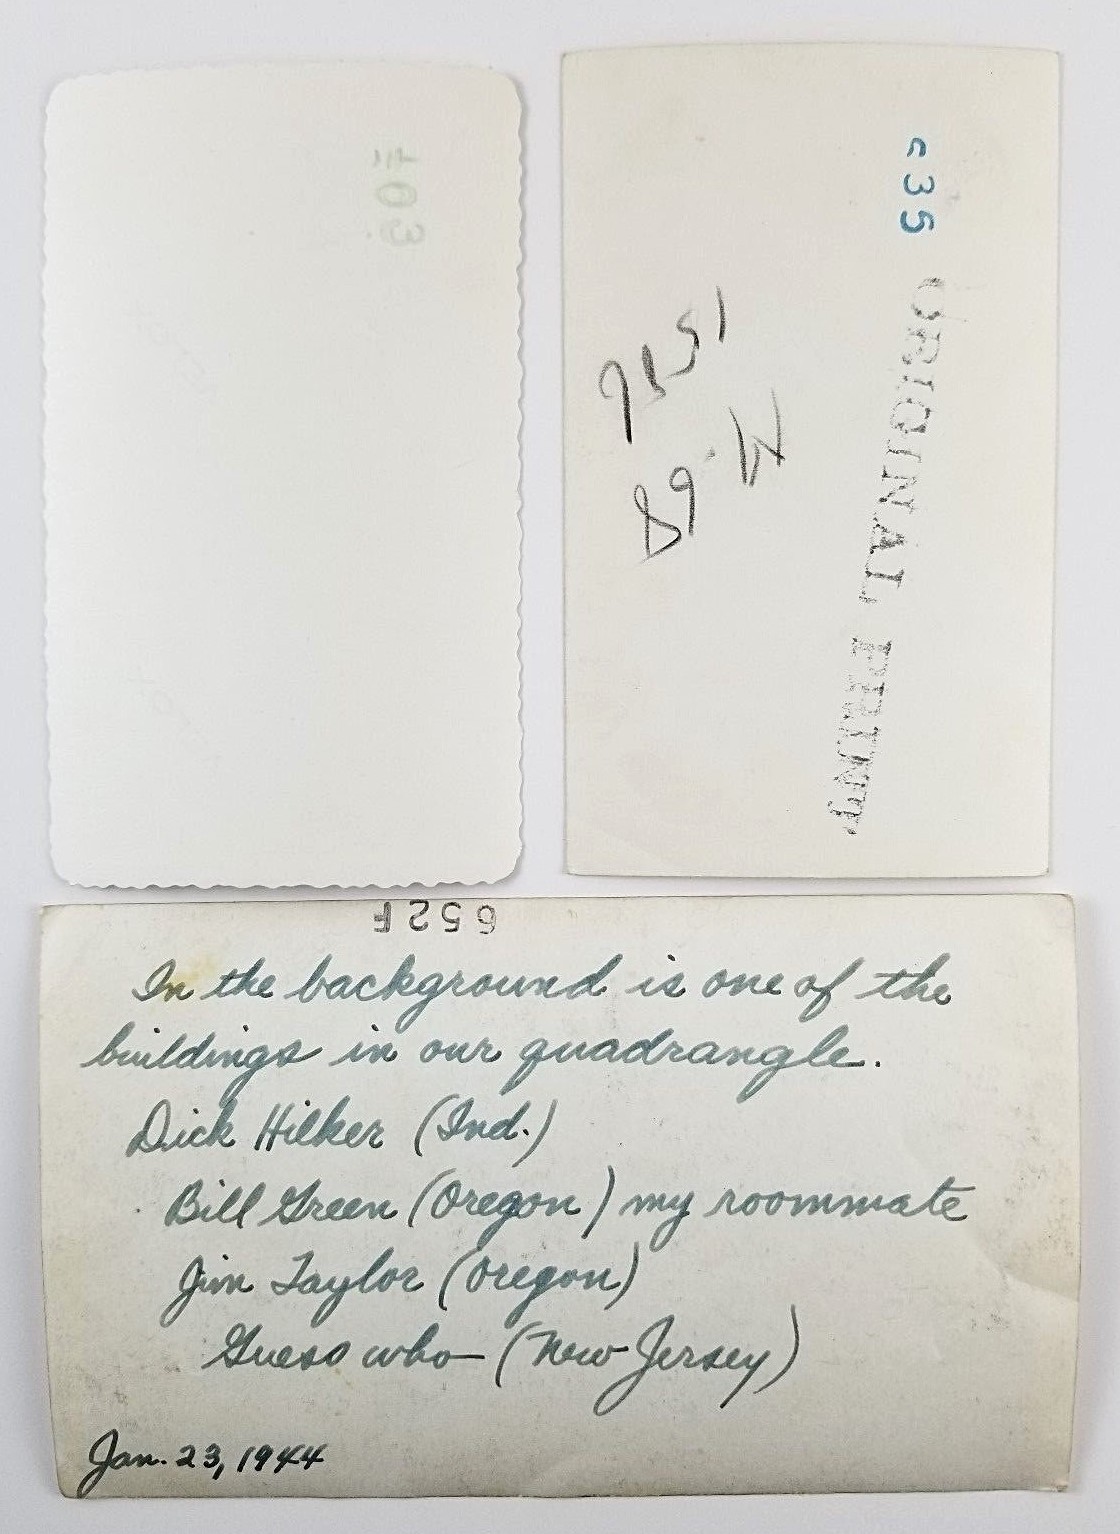 c35
ORIGINAL PRINT
652F
In the background is one of the
buildings in our quadrangle.
Dick Hilker (Ind.)
Bill Green (Oregon) my roommate
Jim Taylor (Oregon)
Guess who — (New Jersey)
Jan. 23, 1944